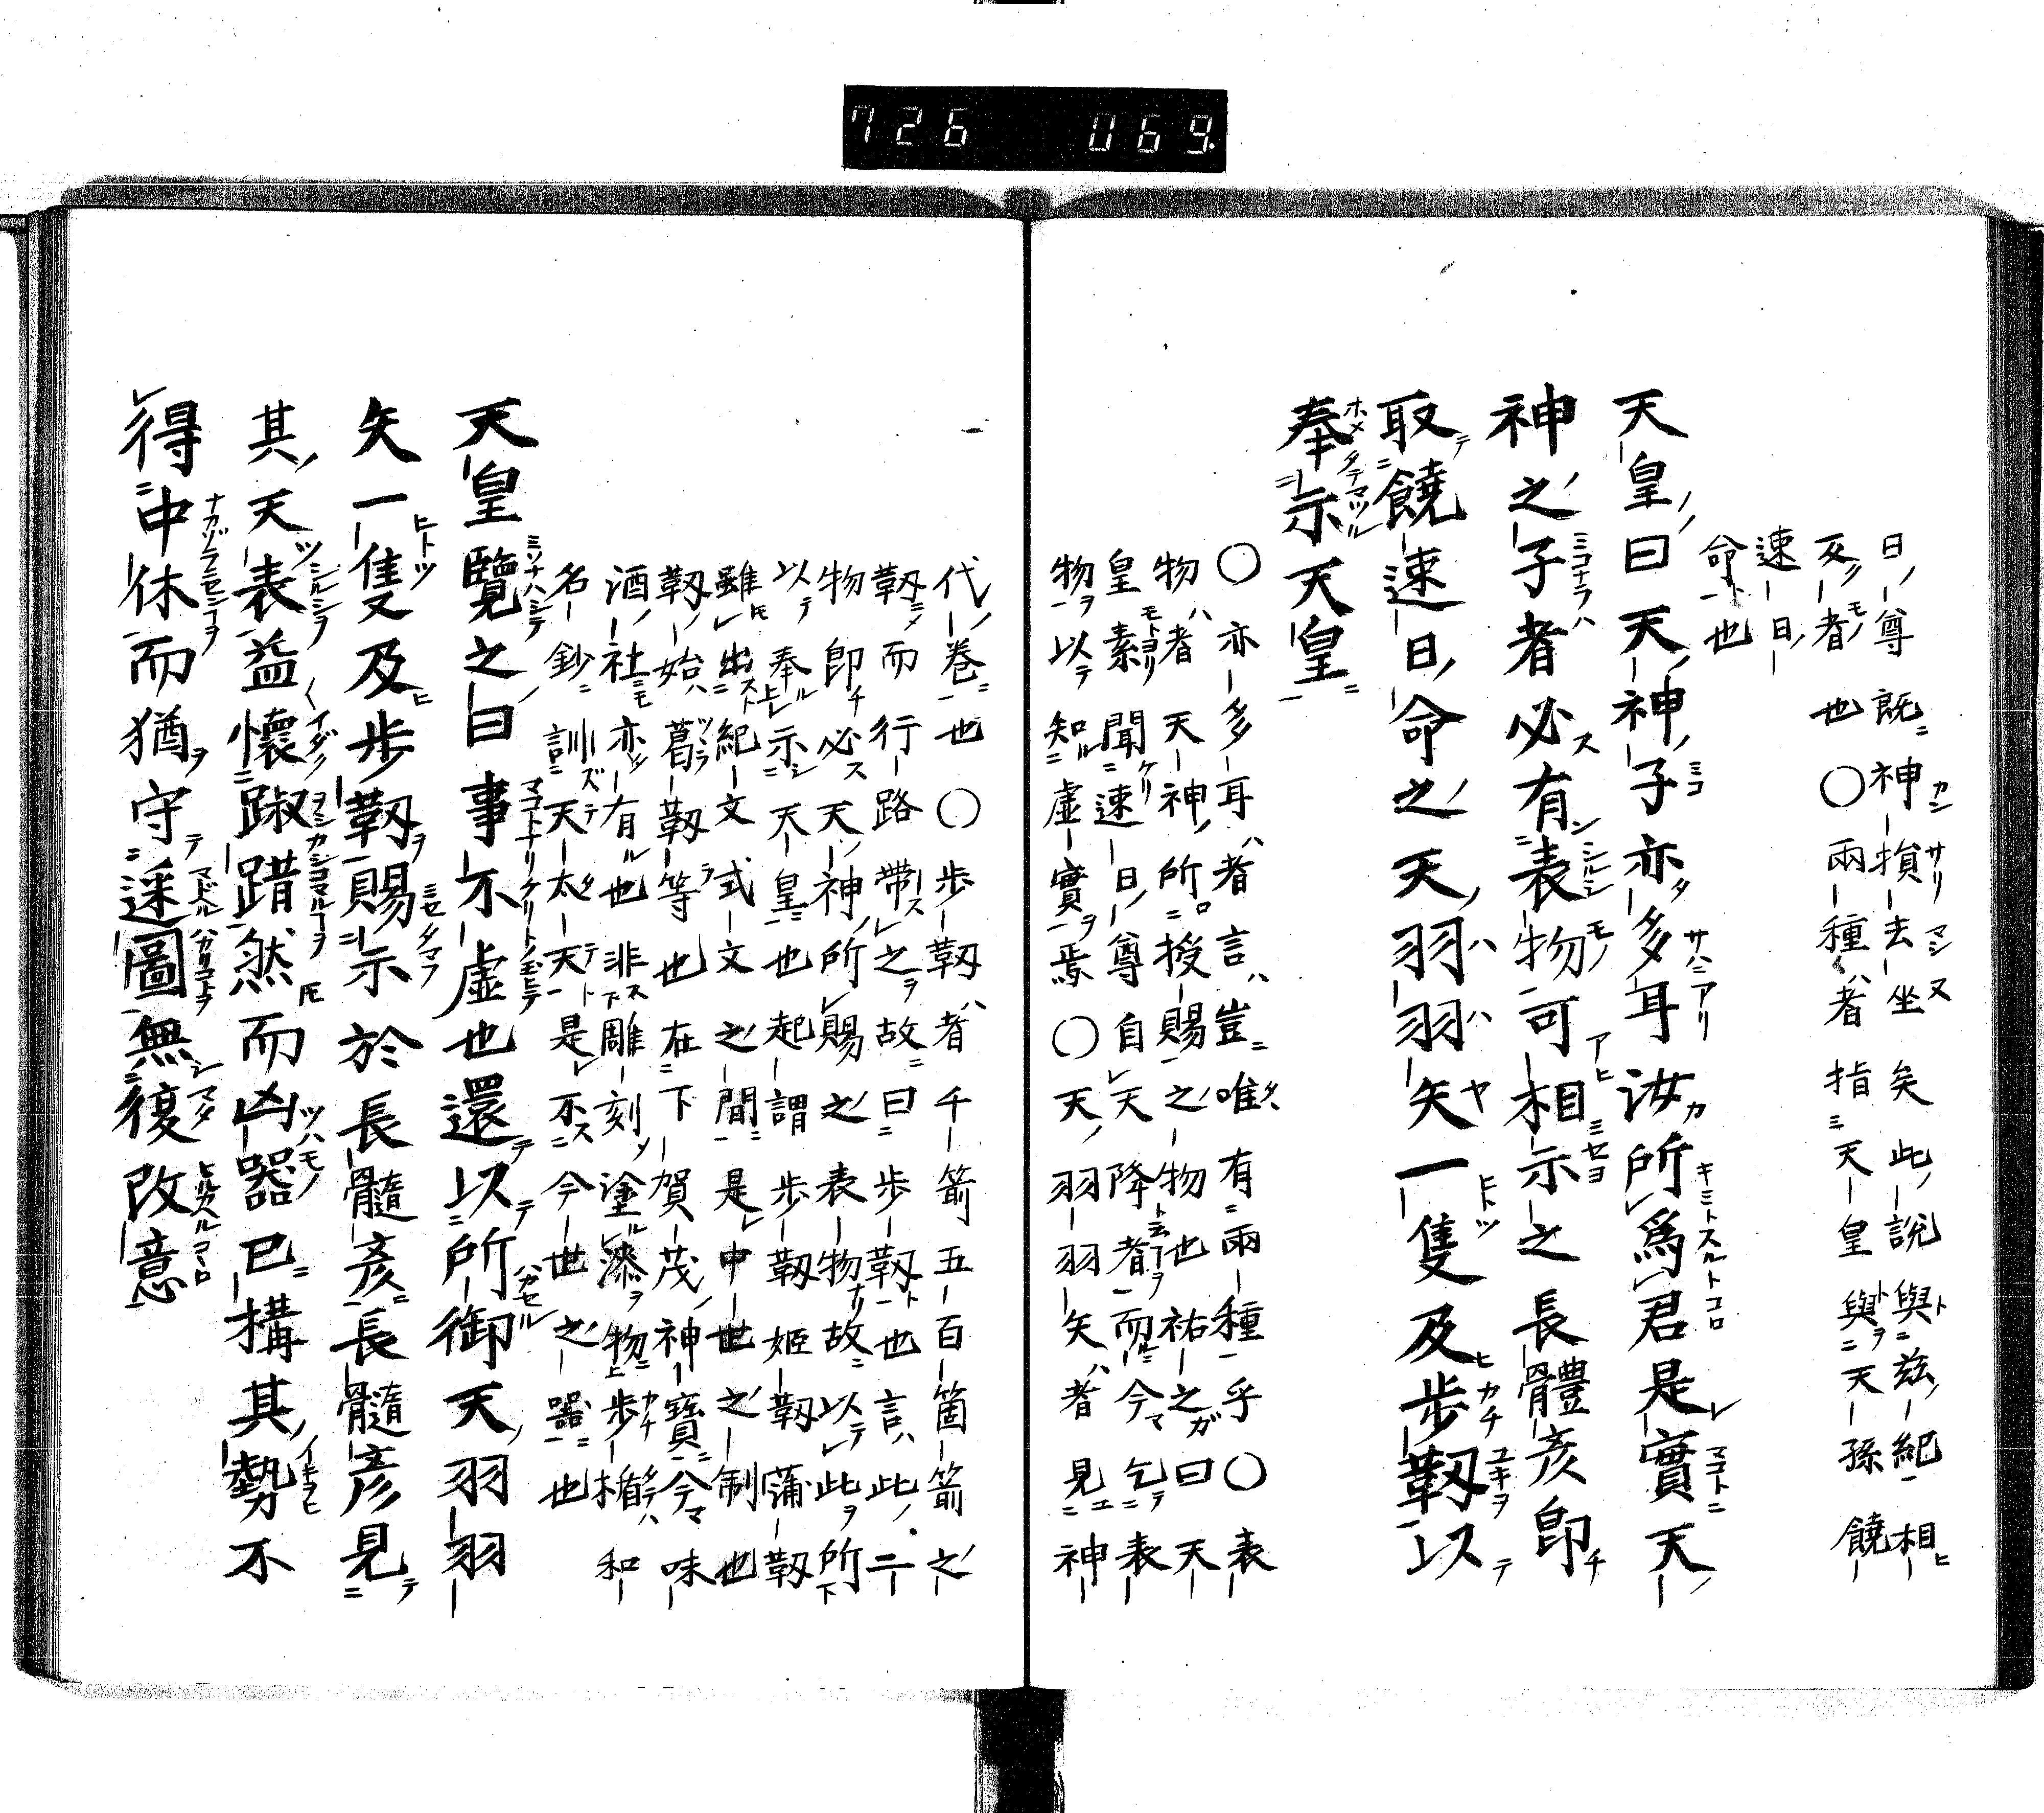 726 069.
日尊既神損去坐矣此説與茲紀相
反者也○兩種者指天皇與天孫饒
速日
命也
天皇曰天神子亦多耳汝所爲君是實天
神之子者必有表物可相示之長體彥卽
取饒速日命之天羽羽矢一隻及步靫以
奉示天皇
○亦多耳者言豈唯有兩種乎○表
物者天神所授賜之物也祐之曰天
皇素聞速日尊自天降者而今乞表
物以知虛實焉○天羽羽矢者見神
代卷也○步靫者千箭五百箇箭之
靫而行路帶之故曰步靫也言此二
物卽必天神所賜之表物故以此所
以奉示天皇也起謂步靫姬靫蒲靫
雖出紀文式文之間是中世之制也
靫始葛靫等也在下賀茂神寶今味
酒社亦有也非雕刻塗漆物步楯和
名鈔訓天太天是不今世之器也
天皇覽之曰事不虛也還以所御天羽羽
矢一隻及步靫賜示於長髓彥長髓彥見
其天表益懷踧踖然而凶器已構其勢不
得中休而猶守迷圖無復改意